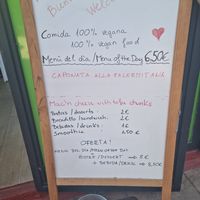 Bien
Welc
Comida 100% vegana
100% vegan food
Menú del día/Menu of the Day 6,50€
CAPONATA ALLA PALERMITANA
Mac'n cheese with tofu chunks
Postres / desserts 2€
Bocadillo / sandwich 2€
Bebidas / drinks 1€
Smoothie 2,50€
OFERTA!
MENÚ DEL DÍA/MENU OF THE DAY
+ POSTRE / DESSERT → 8€
+ BEBIDA / DRINK → 8,50€